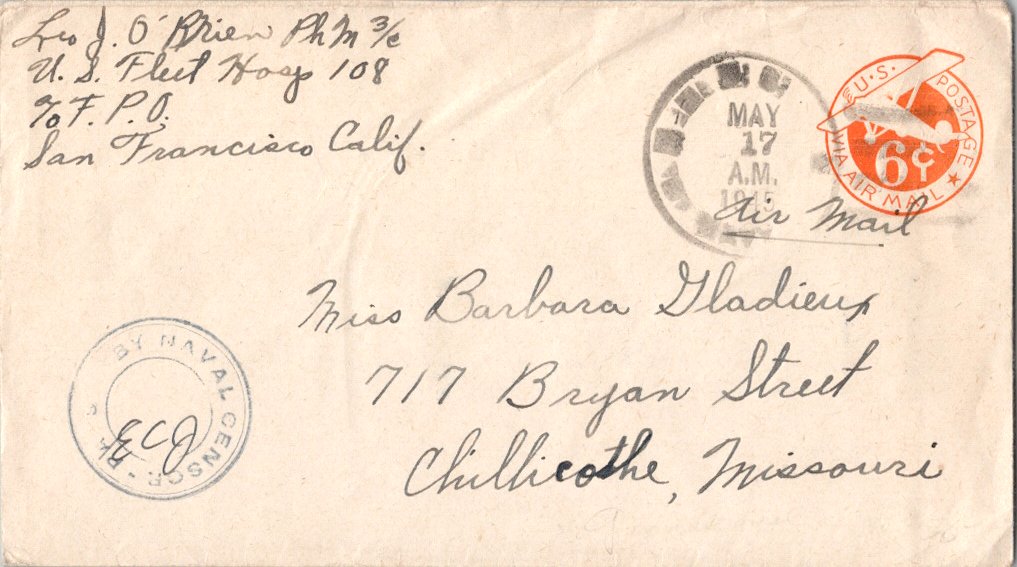 Leo J. O'Brien PhM 3/c
U. S. Fleet Hosp 108
℅ F. P. O.
San Francisco Calif.
MAY
17
A.M.
1945
U.S. POSTAGE
6¢
VIA AIR MAIL
Air Mail
Miss Barbara Gladieux
717 Bryan Street
Chillicothe, Missouri
BY NAVAL CENSOR